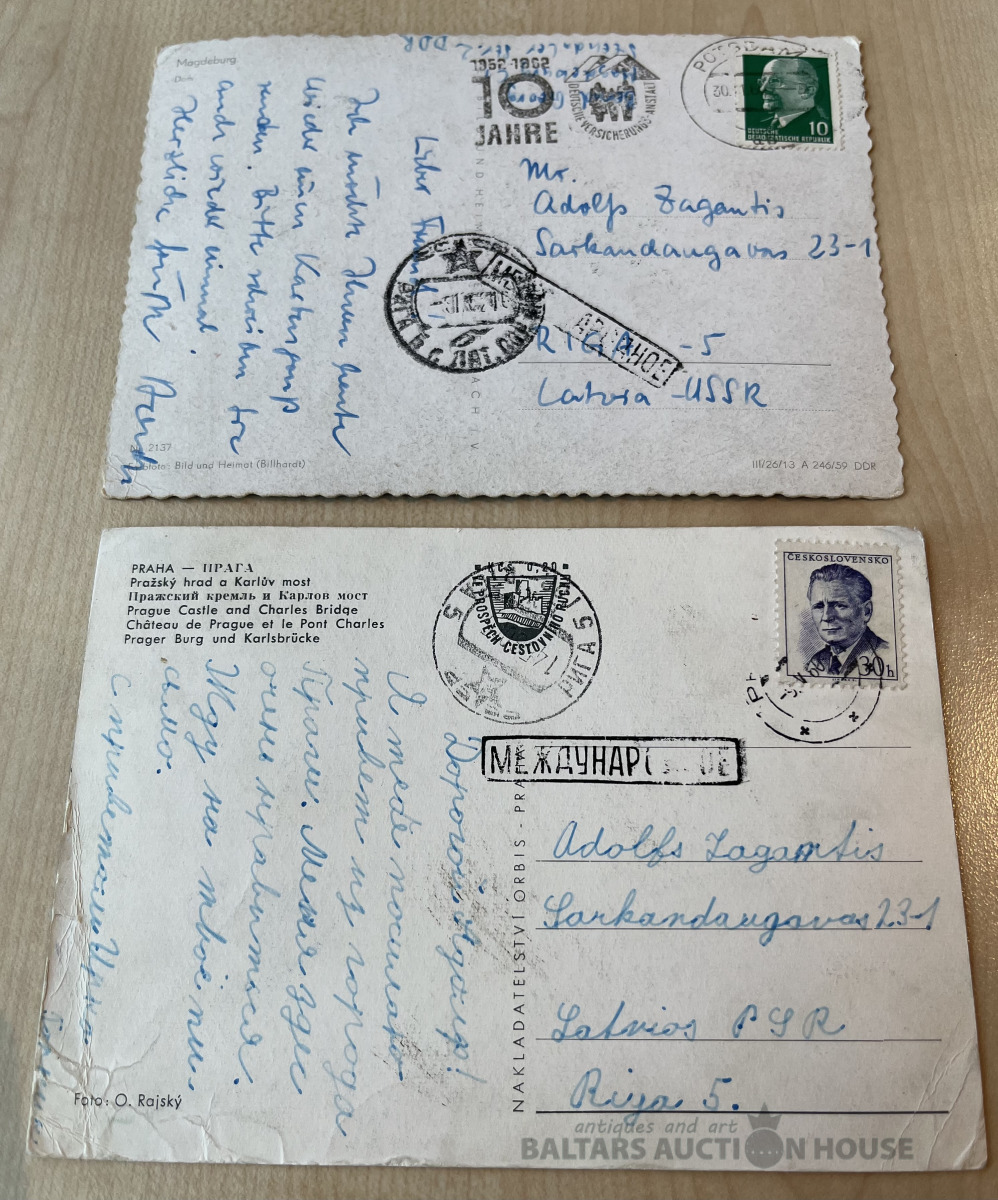 Magdeburg
Dom
DDR
1952-1962
10
JAHRE
DEUTSCHE VERSICHERUNGS-ANSTALT
POTSDAM
30.
DEUTSCHE
DEMOKRATISCHE REPUBLIK
10
Mr.
Adolfs Zagantis
Sarkandaugavas 23-1
RIGA -5
Latvia -USSR
РИГА
ЛАТ.
Ich möchte Ihnen heute
wieder einen Kartengruß
senden. Bitte schreiben Sie
auch wieder einmal.
Herzliche Grüße
Nr. 2137
Echtfoto: Bild und Heimat (Billhardt)
III/26/13 A 246/59 DDR
PRAHA — ПРАГА
Pražský hrad a Karlův most
Пражский кремль и Карлов мост
Prague Castle and Charles Bridge
Château de Prague et le Pont Charles
Prager Burg und Karlsbrücke
KČS 0,20
VE PROSPĚCH CESTOVNÍHO RUCHU
РИГА 5
ČESKOSLOVENSKO
30h
МЕЖДУНАРОДНОЕ
Дорогой Адольф!
Я тебе посылаю
привет из города
Праги. Меня здес
очень нравится.
Жду на твоё пи
сьмо.
с приветом Ирина
NAKLADATELSTVÍ ORBIS - PRAHA
Adolfs Zagantis
Sarkandaugavas 23-1
Latvios PSR
Riga 5.
Foto: O. Rajský
antiques and art
BALTARS AUCTION HOUSE